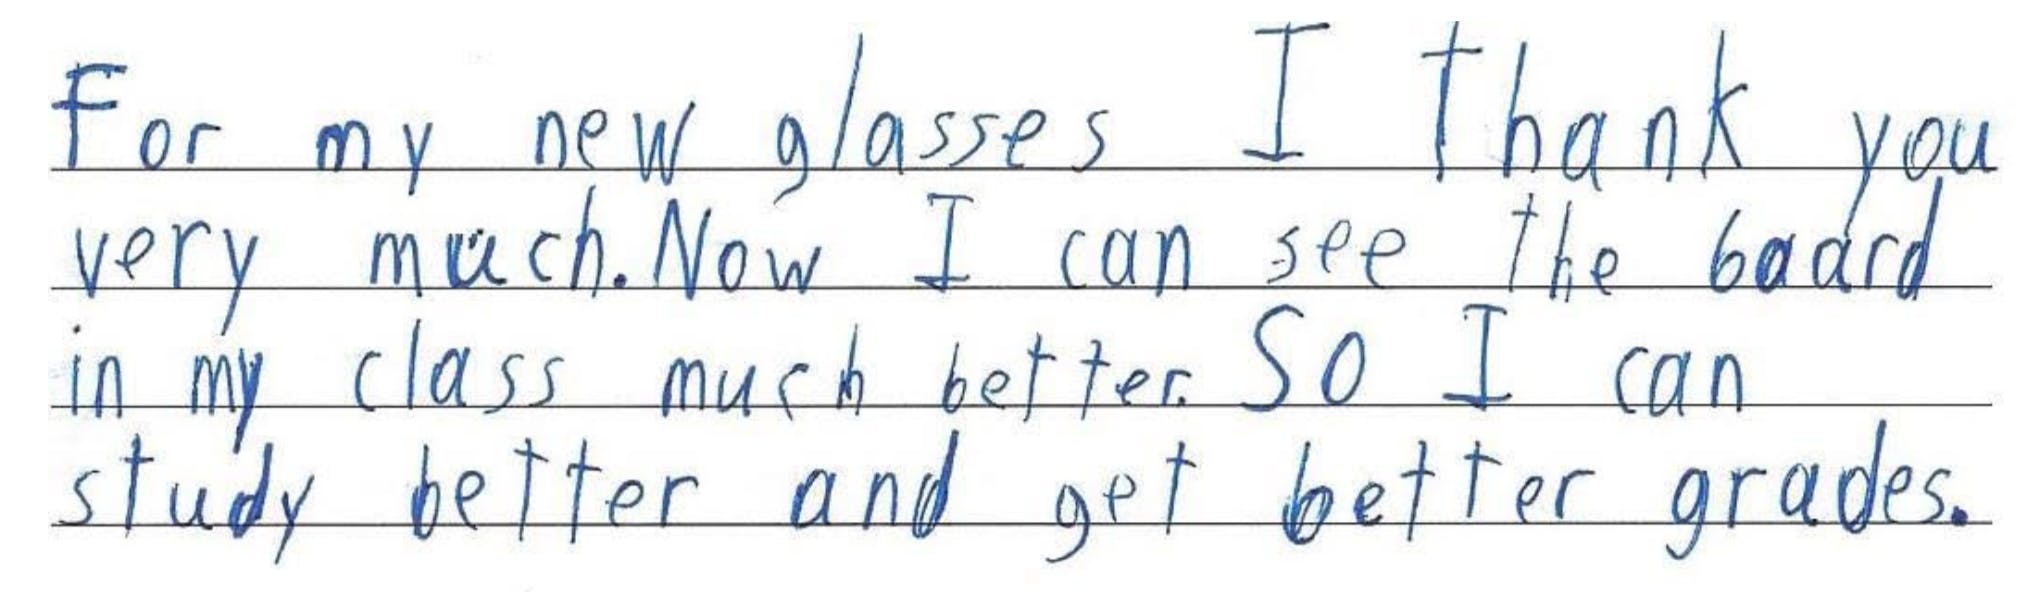 For my new glasses I thank you
very much. Now I can see the board
in my class much better. So I can
study better and get better grades.